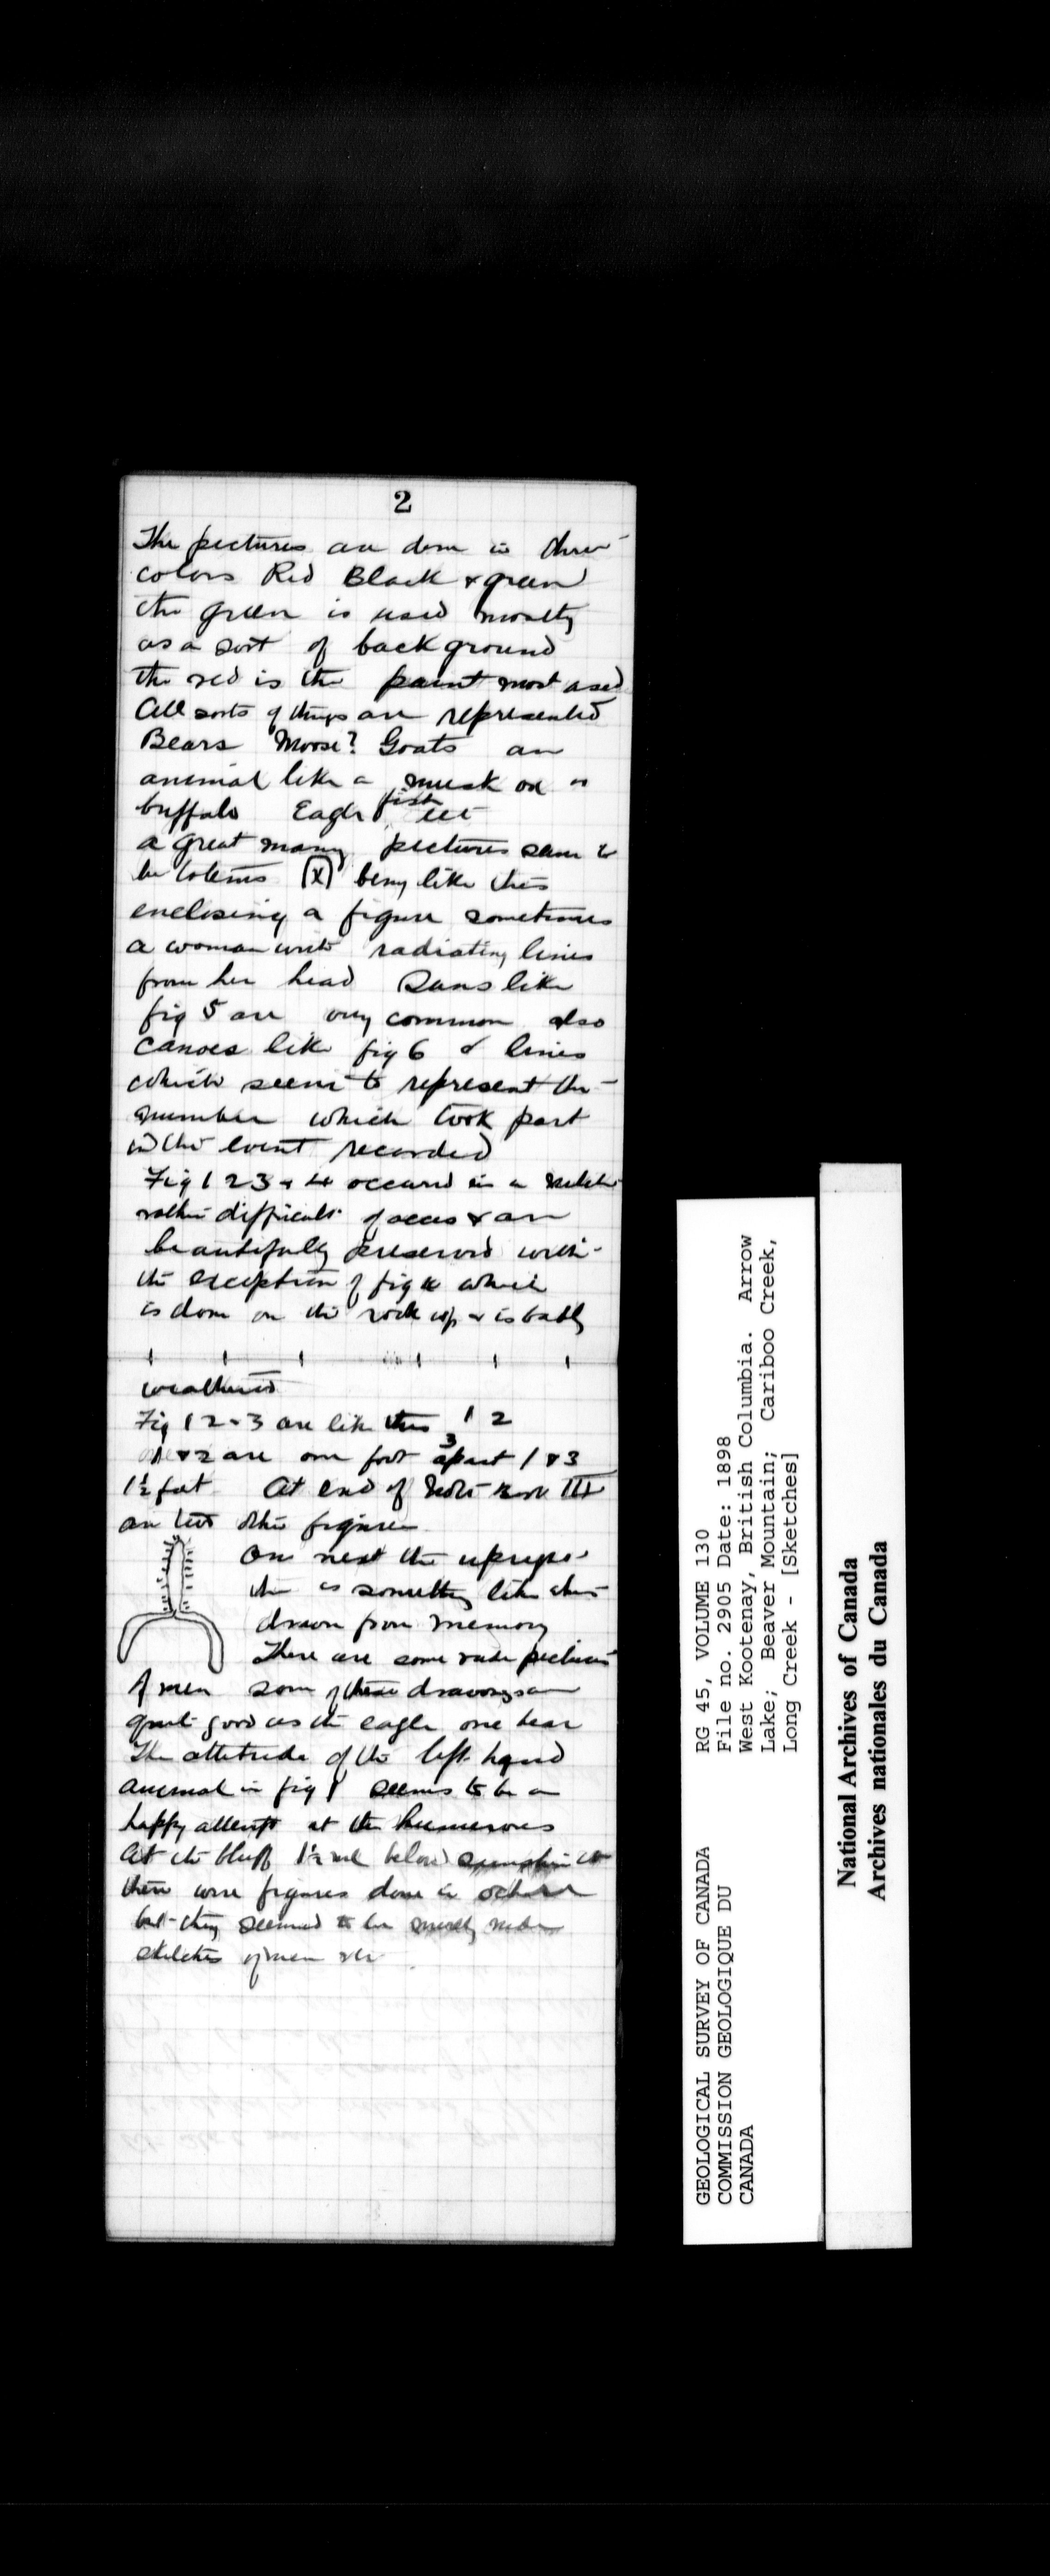 2
The pictures are done in three
colors Red Black & green
the green is used mostly
as a sort of back ground
the red is the paint most used
All sorts of things are represented
Bears Moose? Goats an
animal like a musk ox or
buffalo Eagle fish etc
a great many pictures seem to
be totems (X) being like this
enclosing a figure sometimes
a woman with radiating lines
from her head Suns like
fig 5 are very common also
canoes like fig 6 & lines
which seem to represent the
number which took part
in the event recorded
Fig 1 2 3 & 4 occured in a
rather difficult of access & are
beautifully preserved with
the exception of fig 4 which
is done on the rock up & is badly
weathered
Fig 1 2 & 3 are like this 1 2
3
1 & 2 are one foot apart 1 & 3
1½ feet At end of Note Book III
are two other figures
On next the
there is something like this
drawn from memory
There are some rude pictures
of men some of these drawings are
quite good as the eagle one bear
The attitude of the left hand
animal in fig 1 seems to be a
happy attempt at the humerous
At the bluff 1½ ml below
there were figures done in ochre
but they seemed to be merely rude
sketches of men etc
GEOLOGICAL SURVEY OF CANADA
COMMISSION GEOLOGIQUE DU
CANADA
RG 45, VOLUME 130
File no. 2905 Date: 1898
West Kootenay, British Columbia. Arrow
Lake; Beaver Mountain; Cariboo Creek,
Long Creek - [Sketches]
National Archives of Canada
Archives nationales du Canada